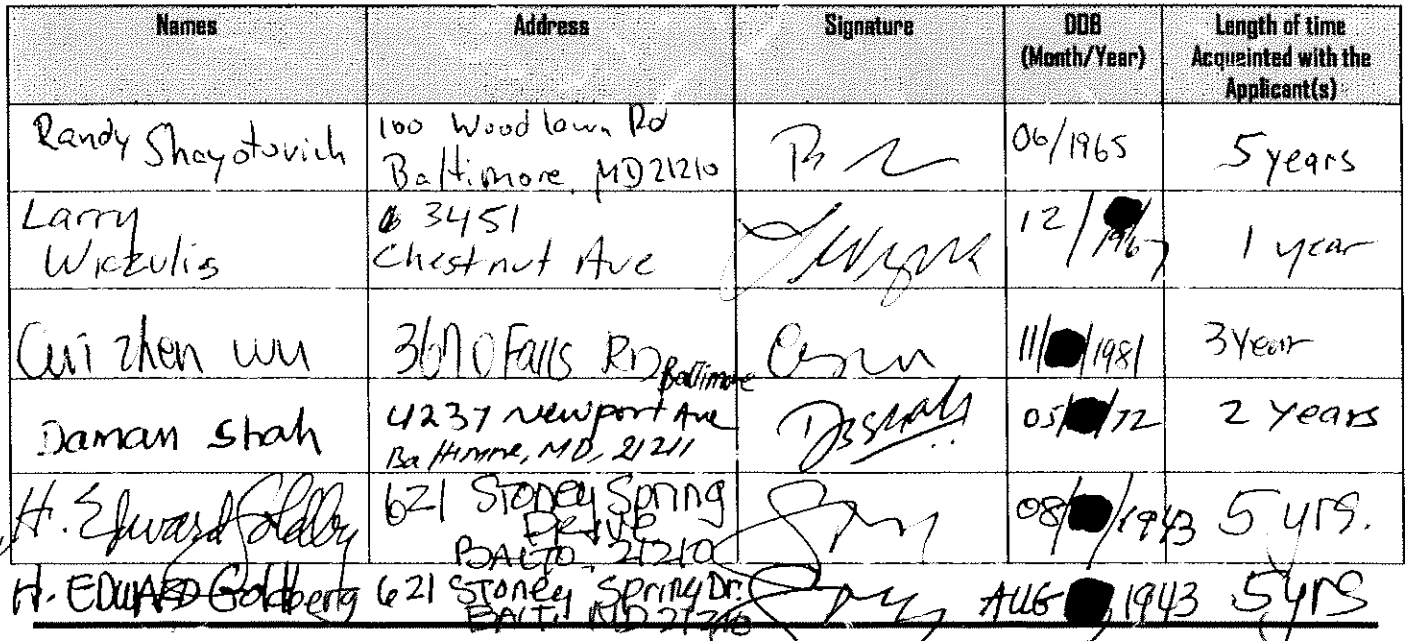 Names Address Signature DOB (Month/Year) Length of time Acqueinted with the Applicant(s)
Randy Shayotovich 100 Woodlawn Rd Baltimore, MD 21210 06/1965 5 years
Larry Wiezulis 3451 Chestnut Ave 12/ 1967 1 year
Cui zhen wu 3670 Falls RD Baltimore 11/ /1981 3 Year
Daman Shah 4237 Newport Ave Baltimore, MD, 21211 DSShah 05/ /72 2 Years
H. Edward 621 Stoney Spring DRIVE BALTO. 21210 08/ /1943 5 yrs.
H. EDWARD Goldberg 621 Stoney Spring Dr. BALTO MD 21210 AUG , 1943 5 yrs